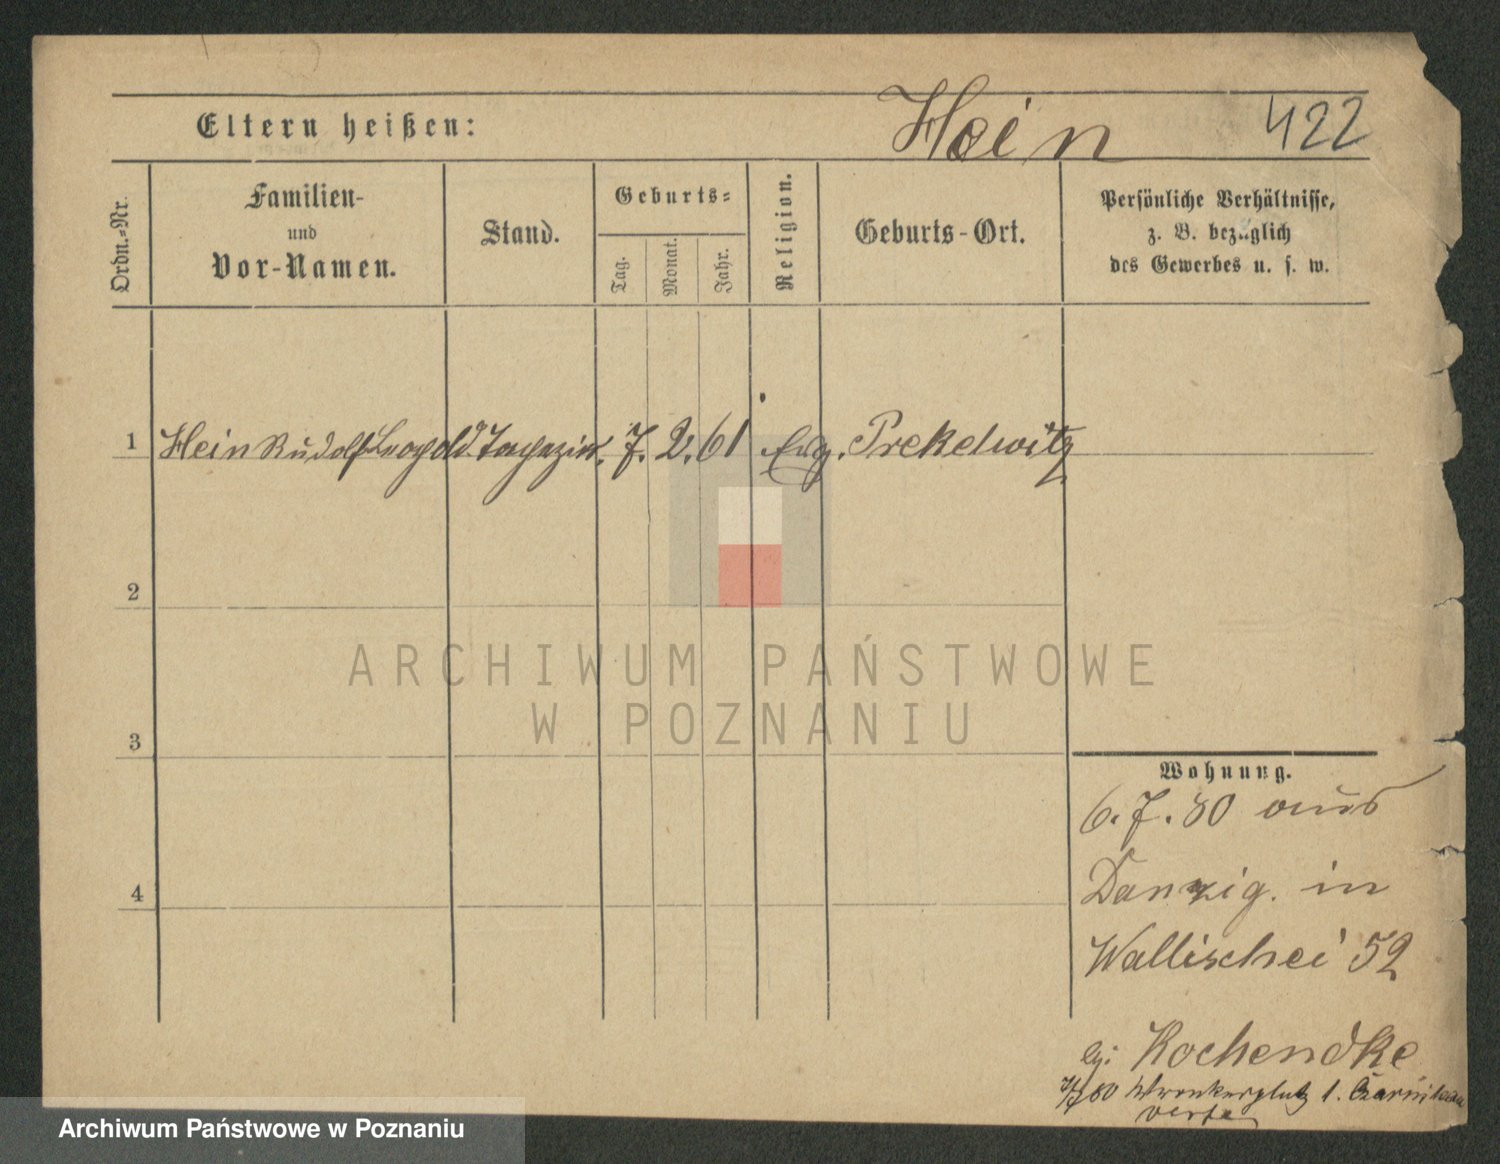 Eltern heißen: Hein 422
Ordn.-Nr.
Familien-
und
Vor-Namen.
Stand.
Geburts-
Tag. Monat. Jahr.
Religion.
Geburts-Ort.
Persönliche Verhältnisse,
z. B. bezüglich
des Gewerbes u. s. w.
1 Hein Rudolf Leopold Tapezier. 7. 2. 61 Evg. Prekelwitz
2
3
4
ARCHIWUM PAŃSTWOWE
W POZNANIU
Wohnung.
6. 7. 80 aus
Danzig. in
Wallischei 52
Kochendke
80 Wronkerplatz 1.
Archiwum Państwowe w Poznaniu